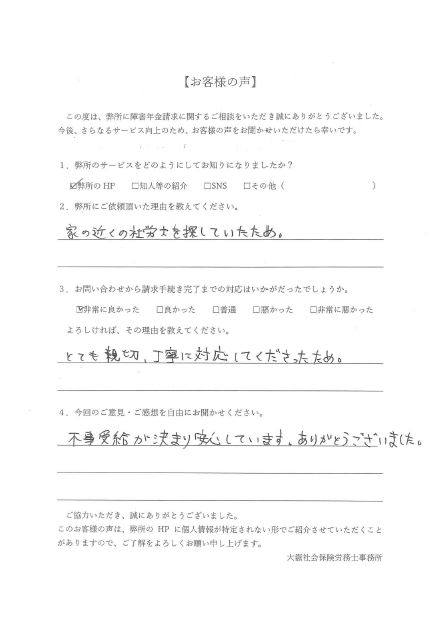 【お客様の声】
この度は、弊所に障害年金請求に関するご相談をいただき誠にありがとうございました。
今後、さらなるサービス向上のため、お客様の声をお聞かせいただけたら幸いです。
1．弊所のサービスをどのようにしてお知りになりましたか？
☑弊所の HP □知人等の紹介 □SNS □その他（ ）
2．弊所にご依頼頂いた理由を教えてください。
家の近くの社労士を探していたため。
3．お問い合わせから請求手続き完了までの対応はいかがだったでしょうか。
☑非常に良かった □良かった □普通 □悪かった □非常に悪かった
よろしければ、その理由を教えてください。
とても親切、丁寧に対応してくださったため。
4．今回のご意見・ご感想を自由にお聞かせください。
不事受給が決まり安心しています。ありがとうございました。
ご協力いただき、誠にありがとうございました。
このお客様の声は、弊所の HP に個人情報が特定されない形でご紹介させていただくこと
がありますので、ご了解をよろしくお願い申し上げます。
社会保険労務士事務所